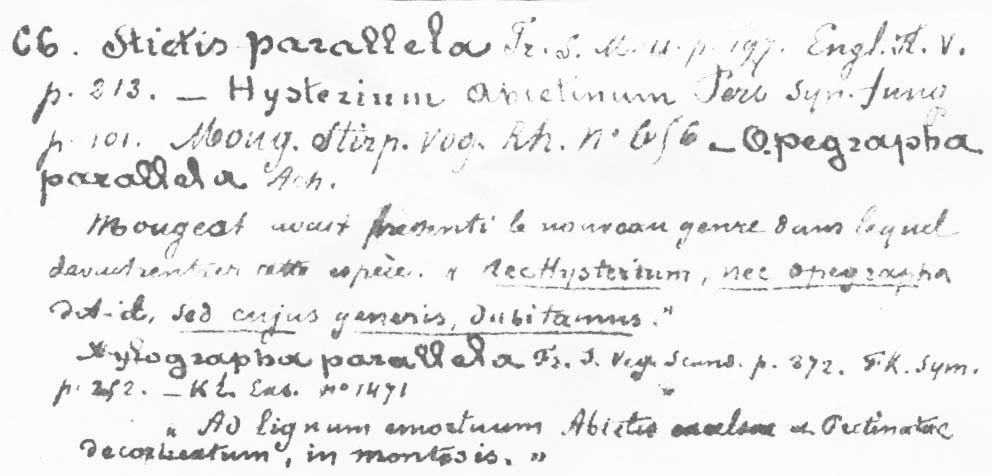 66. Stictis parallela Fr. S. M. II. p. 197. Engl. Fl. V.
p. 213. — Hysterium abietinum Pers Syn. fung
p. 101. Moug. Stirp. Vog. Rh. n° 656 — Opegrapha
parallela Ach.
Mougeot avait pressenti le nouveau genre dans lequel
devait rentrer cette espèce. « nec Hysterium, nec opegrapha
dit-il, sed cujus generis, dubitamus. "
Xylographa parallela Fr. S. Veg. Scand. p. 372. F. K. Sym.
p. 252. — Kl. Exs. n° 1471
" Ad lignum emortuum Abietis excelsae & Pectinatae
decorticatum, in montosis. "